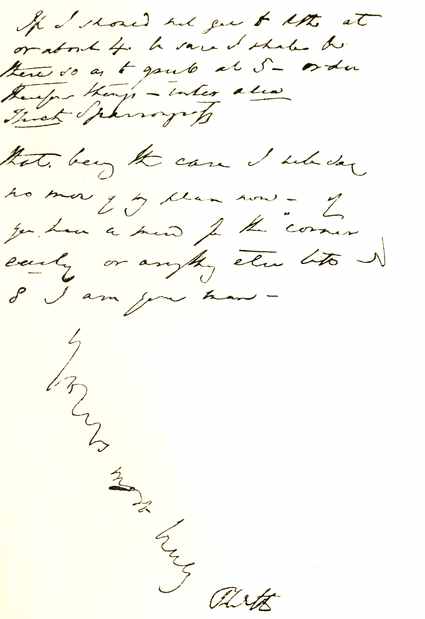 If I should not get to at
or about 4 be sure I shall be
there so as to grub at 5 – order
therefore things – inter alia
Sparrowgrass
that being the case I
no more of my plan now – if
you have a mind for the "corner
early or anything else
8 I am your man –
Yours
most
truly